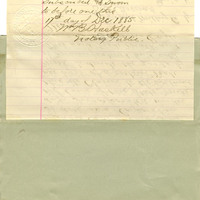 Subscribed & Sworn
to before me this
11th day of Dec 1885
Notary Public